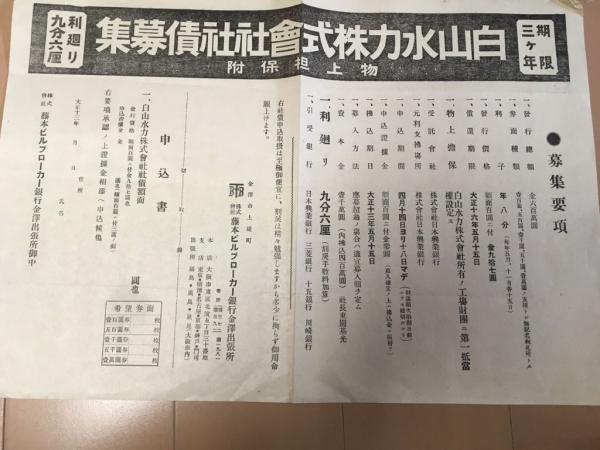 期限三ヶ年
白山水力株式會社社債募集
利廻り九分六厘
物上担保附
募集要項
一、發行總額 金六百萬圓
一、券面種類
一、利子 年八分
一、發行價格 額面百圓ニ付 金九拾七圓
一、償還期限 大正十六年五月十五日
一、物上擔保 白山水力株式會社所有ノ工塲財團ニ第一抵當權設定ス
一、受託會社 株式會社日本興業銀行
一、元利支拂塲所 株式會社日本興業銀行
一、申込期間 四月十四日ヨリ十八日マデ
一、申込證據金 額面百圓ニ付金參圓
一、拂込期日 大正十三年五月十五日
一、募入方法 應募超過ノ塲合ハ適宜募入額ヲ定ム
一、資本金 壹千萬圓 (内拂込四百萬圓) 社長東園基光
一、利廻り 九分六厘 (割戻手數料加算)
一、引受銀行 日本興業銀行 三菱銀行 十五銀行 川崎銀行
右社債申込取扱は至極御便宜に、割戻は精々勉強しますから多少に拘らず御用命
願上げます。
金澤市上堤町
株式會社 藤本ビルブローカー銀行金澤出張所
申込書
一、白山水力株式會社社債額面
圓也
右要項承認ノ上證據金相添ヘ申込候也
大正十三年 月 日
住所
氏名
株式會社 藤本ビルブローカー銀行金澤出張所御中
希望券面
壹百圓券 枚
五百圓券 枚
壹千圓券 枚
五千圓券 枚
壹萬圓券 枚